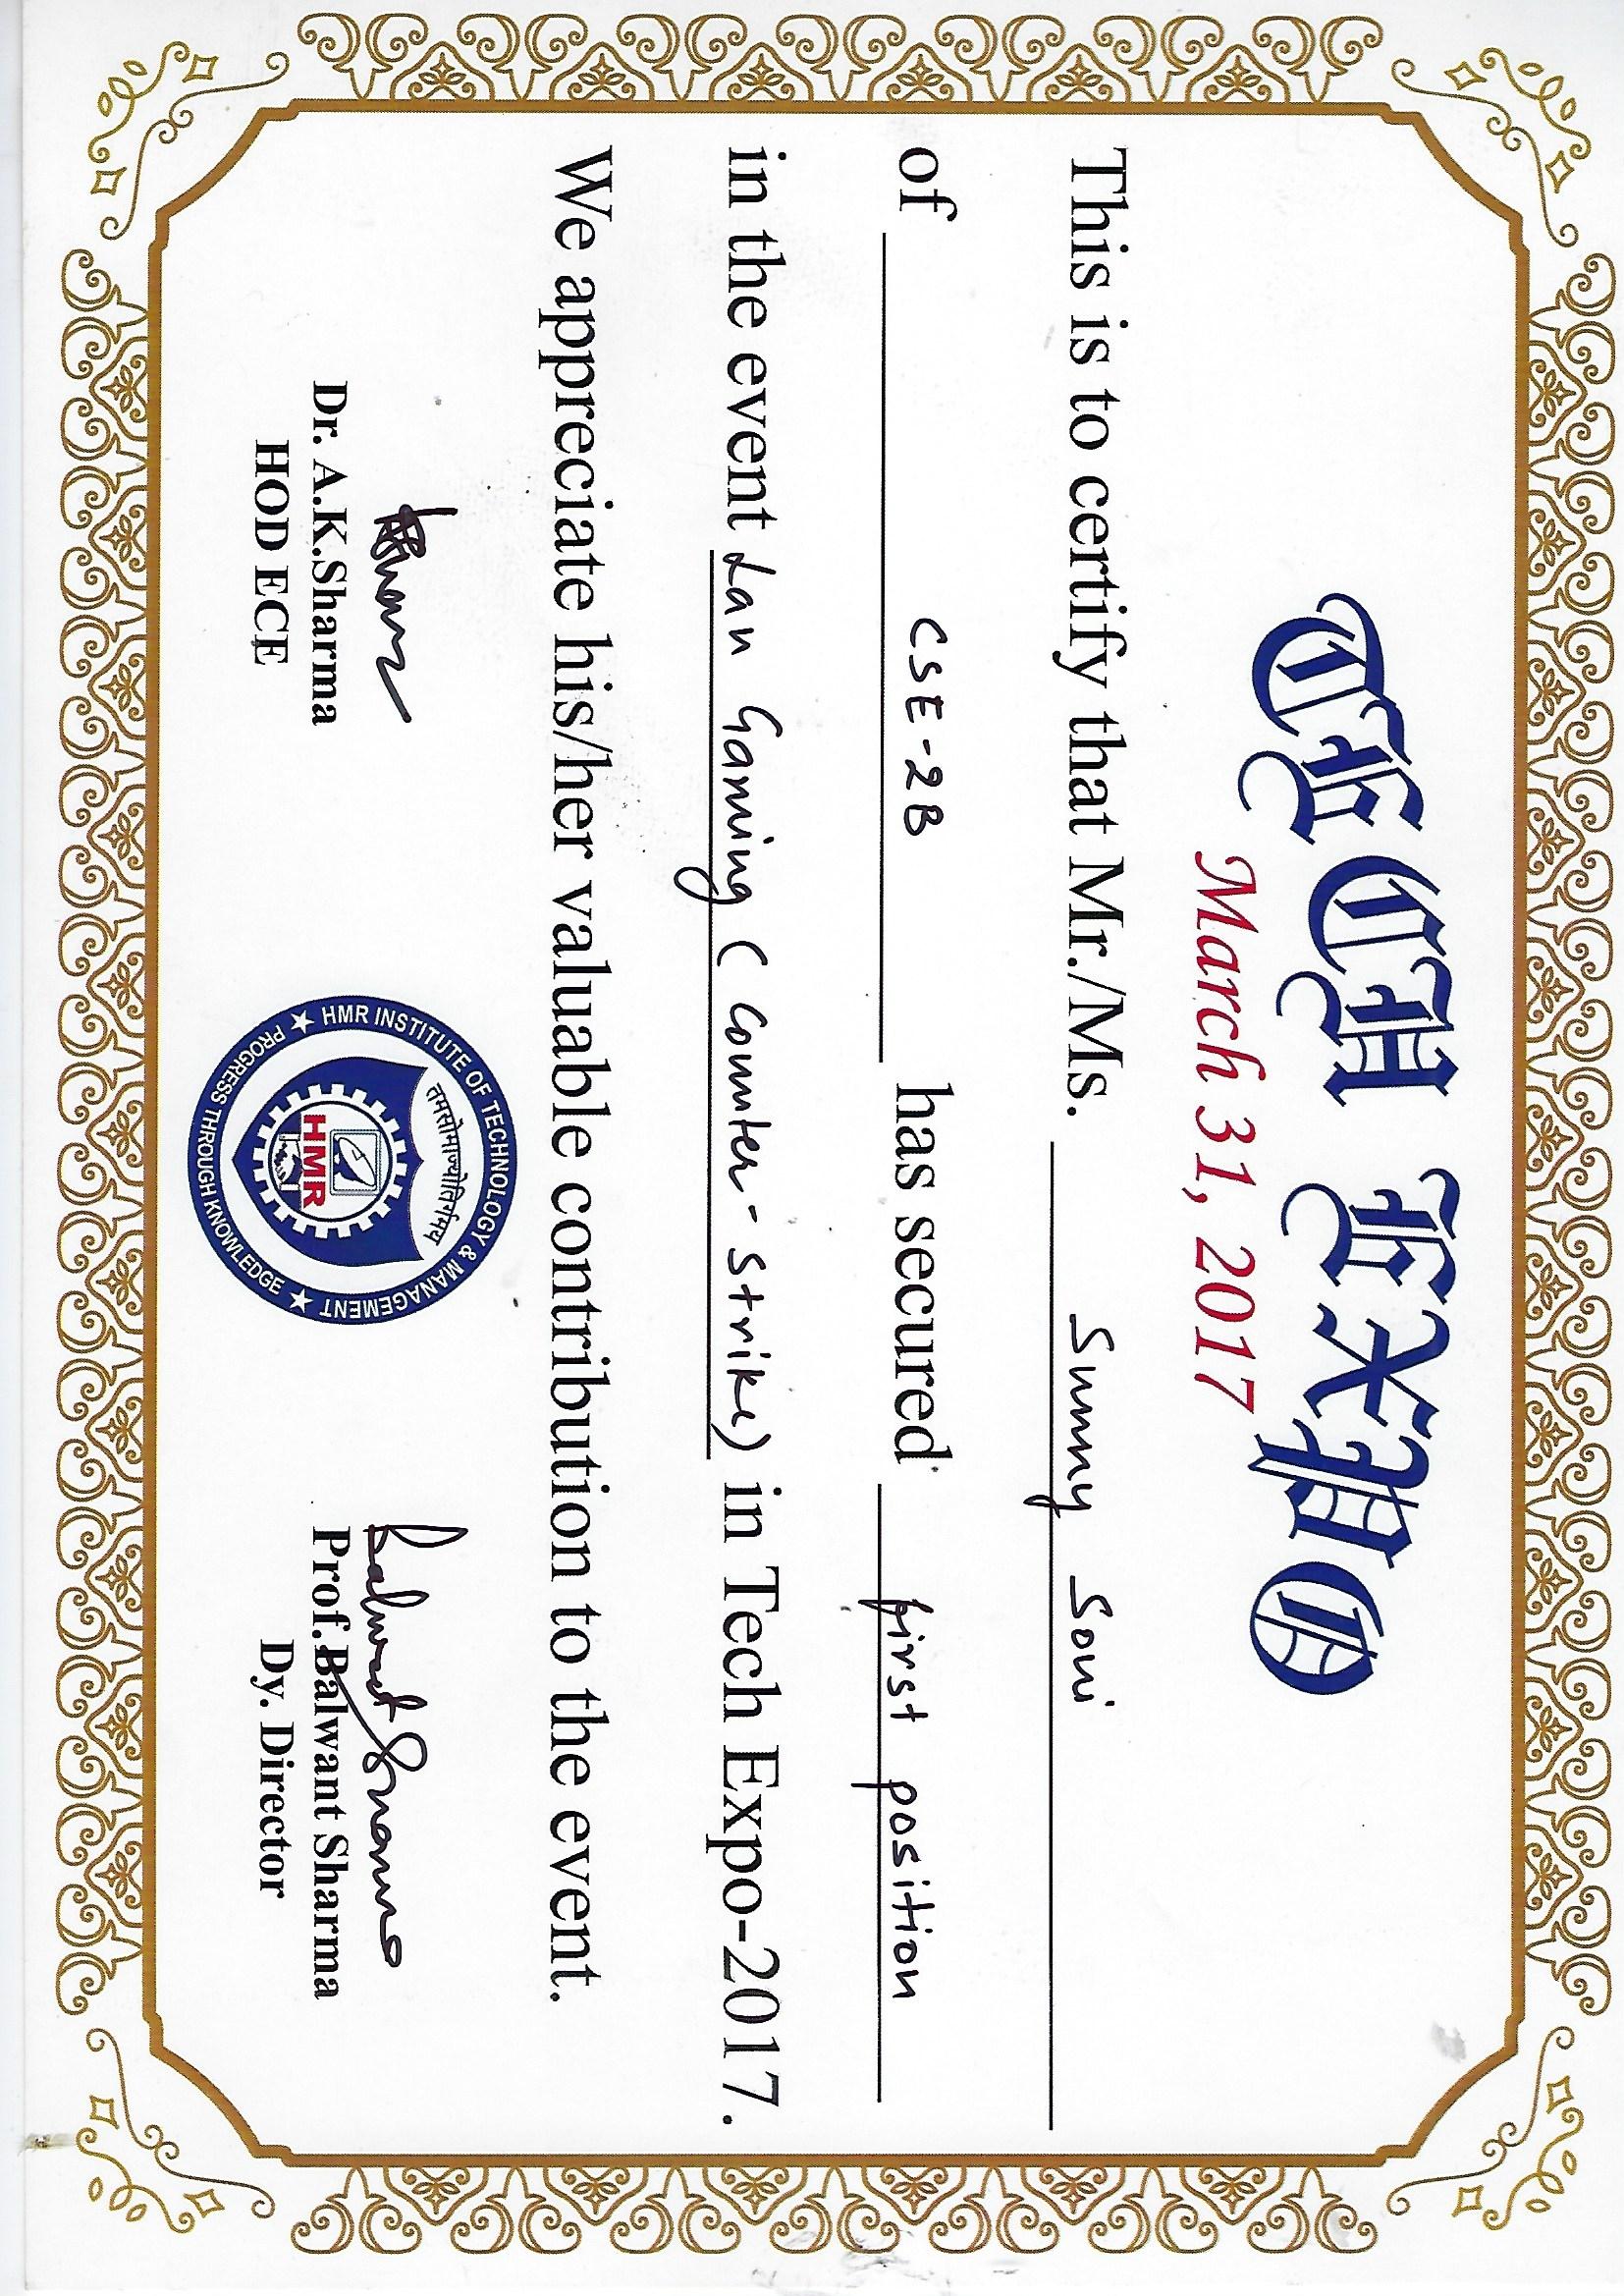 TECH EXPO
March 31, 2017
This is to certify that Mr./Ms. Sunny Soni
of CSE-2B has secured first position
in the event Lan Gaming (Counter-Strike) in Tech Expo-2017.
We appreciate his/her valuable contribution to the event.
HMR INSTITUTE OF TECHNOLOGY & MANAGEMENT
तमसोमाज्योतिर्गमय
HMR
PROGRESS THROUGH KNOWLEDGE
Balwant Sharma
Dr. A.K.Sharma
HOD ECE
Prof.Balwant Sharma
Dy. Director